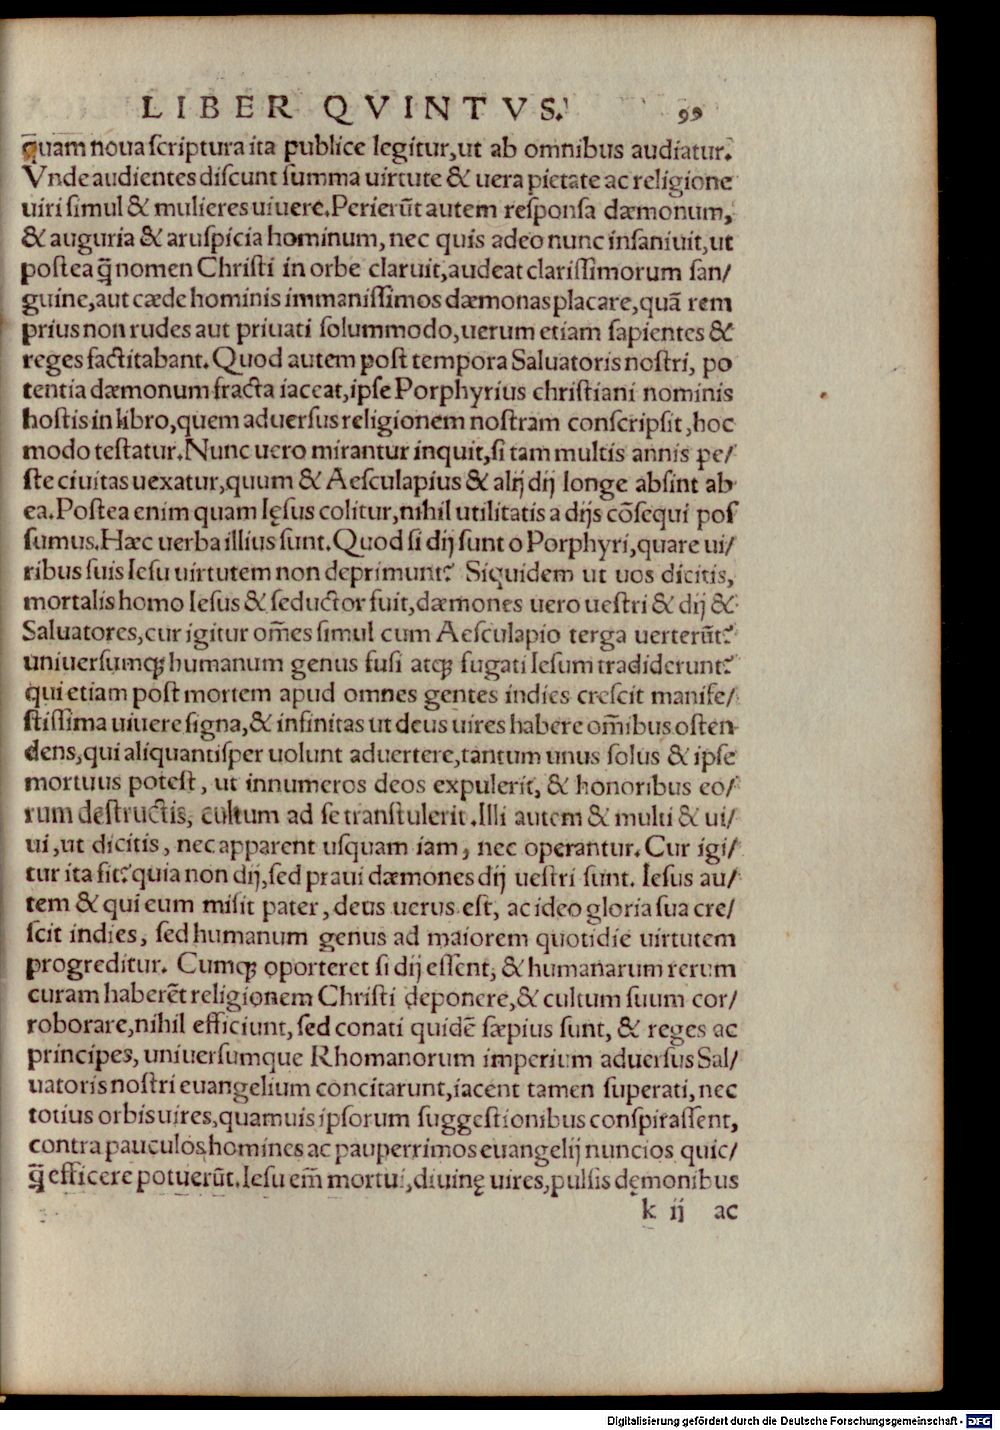 LIBER QVINTVS. 99
q̄uam noua scriptura ita publice legitur,ut ab omnibus audiatur.
Vnde audientes discunt summa uirtute & uera pietate ac religione
uiri simul & mulieres uiuere.Perierūt autem responsa dæmonum,
& auguria & aruspicia hominum, nec quis adeo nunc insaniuit,ut
postea q̄ nomen Christi in orbe claruit,audeat clarissimorum san/
guine,aut cæde hominis immanissimos dæmonas placare,quā rem
prius non rudes aut priuati solummodo,uerum etiam sapientes &
reges factitabant.Quod autem post tempora Saluatoris nostri, po
tentia dæmonum fracta iaceat,ipse Porphyrius christiani nominis
hostis in libro,quem aduersus religionem nostram conscripsit,hoc
modo testatur.Nunc uero mirantur inquit,si tam multis annis pe/
ste ciuitas uexatur,quum & Aesculapius & alij dij longe absint ab
ea.Postea enim quam Ięsus colitur,nihil utilitatis a dijs cōsequi pos
sumus.Hæc uerba illius sunt.Quod si dij sunt o Porphyri,quare ui/
ribus suis Iesu uirtutem non deprimunt? Siquidem ut uos dicitis,
mortalis homo Iesus & seductor fuit,dæmones uero uestri & dij &
Saluatores,cur igitur om̄es simul cum Aesculapio terga uerterūt?
uniuersumq; humanum genus fusi atq; fugati Iesum tradiderunt?
qui etiam post mortem apud omnes gentes indies crescit manife/
stissima uiuere signa,& infinitas ut deus uires habere om̄ibus osten-
dens,qui aliquantisper uolunt aduertere,tantum unus solus & ipse
mortuus potest, ut innumeros deos expulerit, & honoribus eo/
rum destructis, cultum ad se transtulerit.Illi autem & multi & ui/
ui,ut dicitis, nec apparent usquam iam, nec operantur. Cur igi/
tur ita sit?quia non dij,sed praui dæmones dij uestri sunt. Iesus au/
tem & qui eum misit pater, deus uerus est, ac ideo gloria sua cre/
scit indies, sed humanum genus ad maiorem quotidie uirtutem
progreditur. Cumq; oporteret si dij essent, & humanarum rerum
curam haberēt religionem Christi deponere,& cultum suum cor/
roborare,nihil efficiunt, sed conati quidē sæpius sunt, & reges ac
principes, uniuersumque Rhomanorum imperium aduersus Sal/
uatoris nostri euangelium concitarunt,iacent tamen superati,nec
totius orbis uires,quamuis ipsorum suggestionibus conspirassent,
contra pauculos homines ac pauperrimos euangelij nuncios quic/
q̄ efficere potuerūt.Iesu em̄ mortui,diuinę uires,pulsis dęmonibus
k ij ac
Digitalisierung gefördert durch die Deutsche Forschungsgemeinschaft - DFG